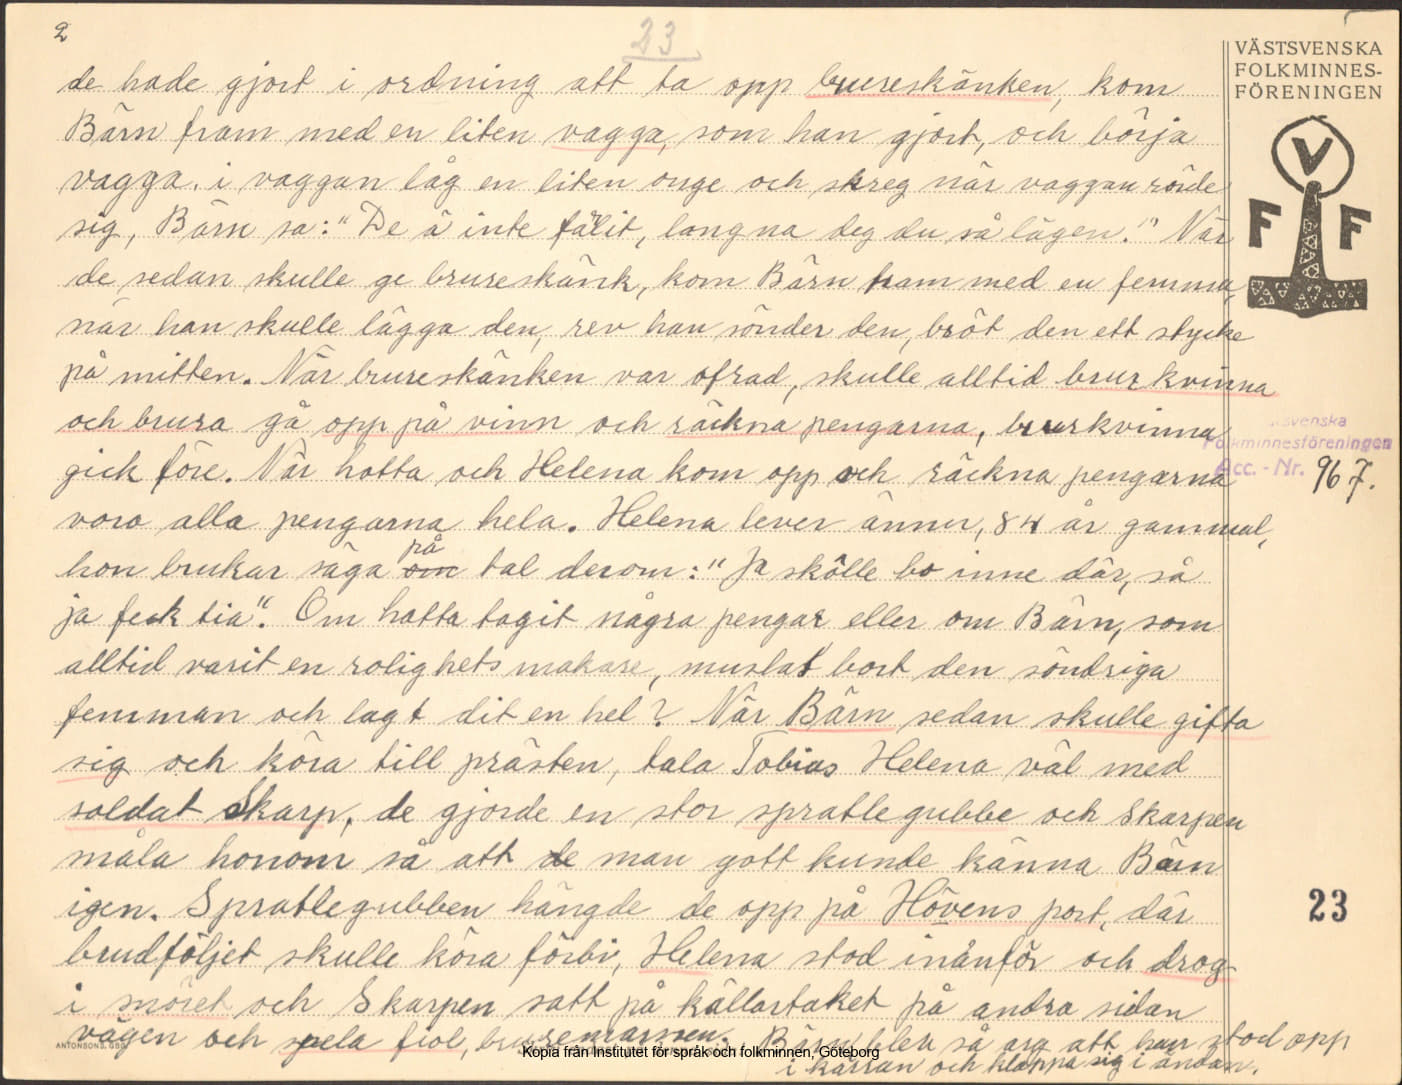 2
23
VÄSTSVENSKA
FOLKMINNES-
FÖRENINGEN
V
F F
de hade gjort i ordning att ta opp brureskänken, kom
Bärn fram med en liten vagga, som han gjort, och börja
vagga. i vaggan låg en liten onge och skreg när vaggan rörde
sig, Bärn sa: "De ä inte fälit, langna deg du så lägen!" När
de sedan skulle ge brureskänk, kom Bärn fram med en femma,
när han skulle lägga den, rev han sönder den, bröt den ett stycke
på mitten. När brureskänken var ofrad, skulle alltid brurkvinna
och brura gå opp på vinn och räckna pengarna, brurkvinna
gick före. Når hotta och Helena kom opp och räckna pengarna
voro alla pengarna hela. Helena lever ännu, 84 år gammal,
hon brukar säga om på tal derom: "Ja skölle bo inne där, så
ja feck tia". Om hatta tagit några pengar eller om Bärn, som
alltid varit en rolighetsmakare, muslat bort den söndriga
femman och lagt dit en hel? När Bärn sedan skulle gifta
sig och köra till prästen, tala Tobias Helena väl med
soldat Skarp, de gjorde en stor sprattlegubbe och Skarpen
måla honom så att de man gott kunde känna Bärn
igen. Sprattlegubben hängde de opp på Hövens port, där
brudföljet skulle köra förbi, Helena stod inånför och drog
i snöret och Skarpen satt på källartaket på andra sidan
vägen och spela fiol, bruremarsen. Bärn blev så arg att han stod opp
i kärran och klappa sig i ändan.
Västsvenska
Folkminnesföreningen
Acc.-Nr. 967.
23
ANTONSONS, GBG
Kopia från Institutet för språk och folkminnen, Göteborg